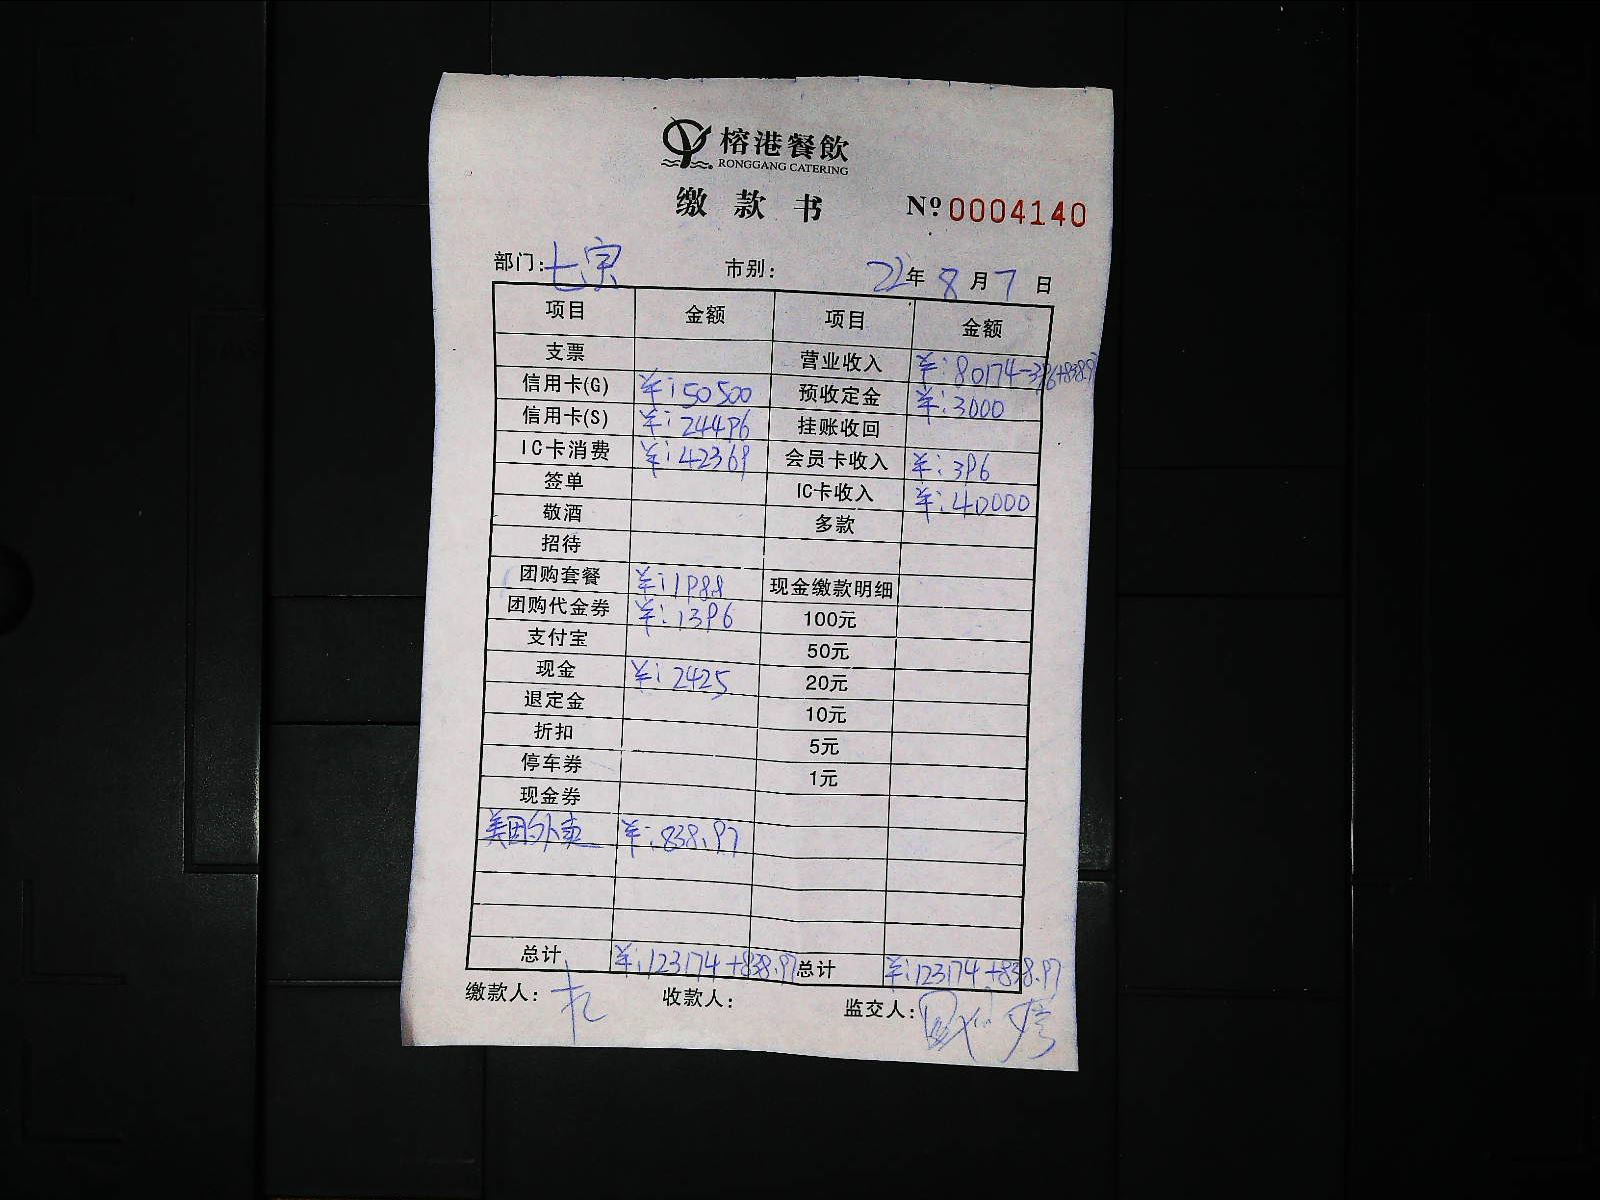 榕港餐飲
RONGGANG CATERING
缴款书 Nº 0004140
部门: 市别: 22年8月7日
项目 金额 项目 金额
支票 营业收入 ¥:80174-396+838.97
信用卡(G) ¥:50500 预收定金 ¥:3000
信用卡(S) ¥:24496 挂账收回
IC卡消费 ¥:42369 会员卡收入 ¥:396
签单 IC卡收入 ¥:40000
敬酒 多款
招待
团购套餐 ¥:1988 现金缴款明细
团购代金券 ¥:1396 100元
支付宝 50元
现金 ¥:2425 20元
退定金 10元
折扣 5元
停车券 1元
现金券
美团外卖 ¥:838.97
总计 ¥:123174+838.97 总计 ¥:123174+838.97
缴款人: 收款人: 监交人: